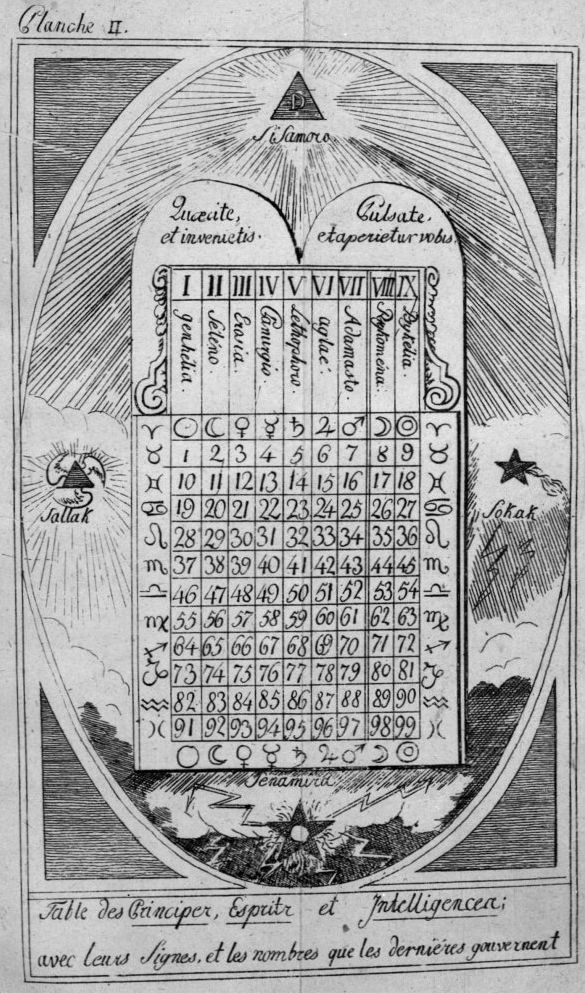 Planche II.
D
Sisamoro
Quærite,
et invenietis.
Pulsate,
et aperietur vobis.
I II III IV V VI VII VIII IX
genhelia. Seleno. Erosia. Panurgio. Lethophoro. aglae. Adamasto. Psykomena. Psykelia.
♈ ☉ ☾ ♀ ☿ ♄ ♃ ♂ ☽ ◎ ♈
♉ 1 2 3 4 5 6 7 8 9 ♉
♊ 10 11 12 13 14 15 16 17 18 ♊
♋ 19 20 21 22 23 24 25 26 27 ♋
♌ 28 29 30 31 32 33 34 35 36 ♌
♏ 37 38 39 40 41 42 43 44 45 ♏
♎ 46 47 48 49 50 51 52 53 54 ♎
♍ 55 56 57 58 59 60 61 62 63 ♍
♐ 64 65 66 67 68 69 70 71 72 ♐
♑ 73 74 75 76 77 78 79 80 81 ♑
♒ 82 83 84 85 86 87 88 89 90 ♒
♓ 91 92 93 94 95 96 97 98 99 ♓
☉ ☾ ♀ ☿ ♄ ♃ ♂ ☽ ◎
Sallak
Sokak
Senamira.
Table des Principes, Esprits et Intelligences;
avec leurs Signes, et les nombres que les dernières gouvernent